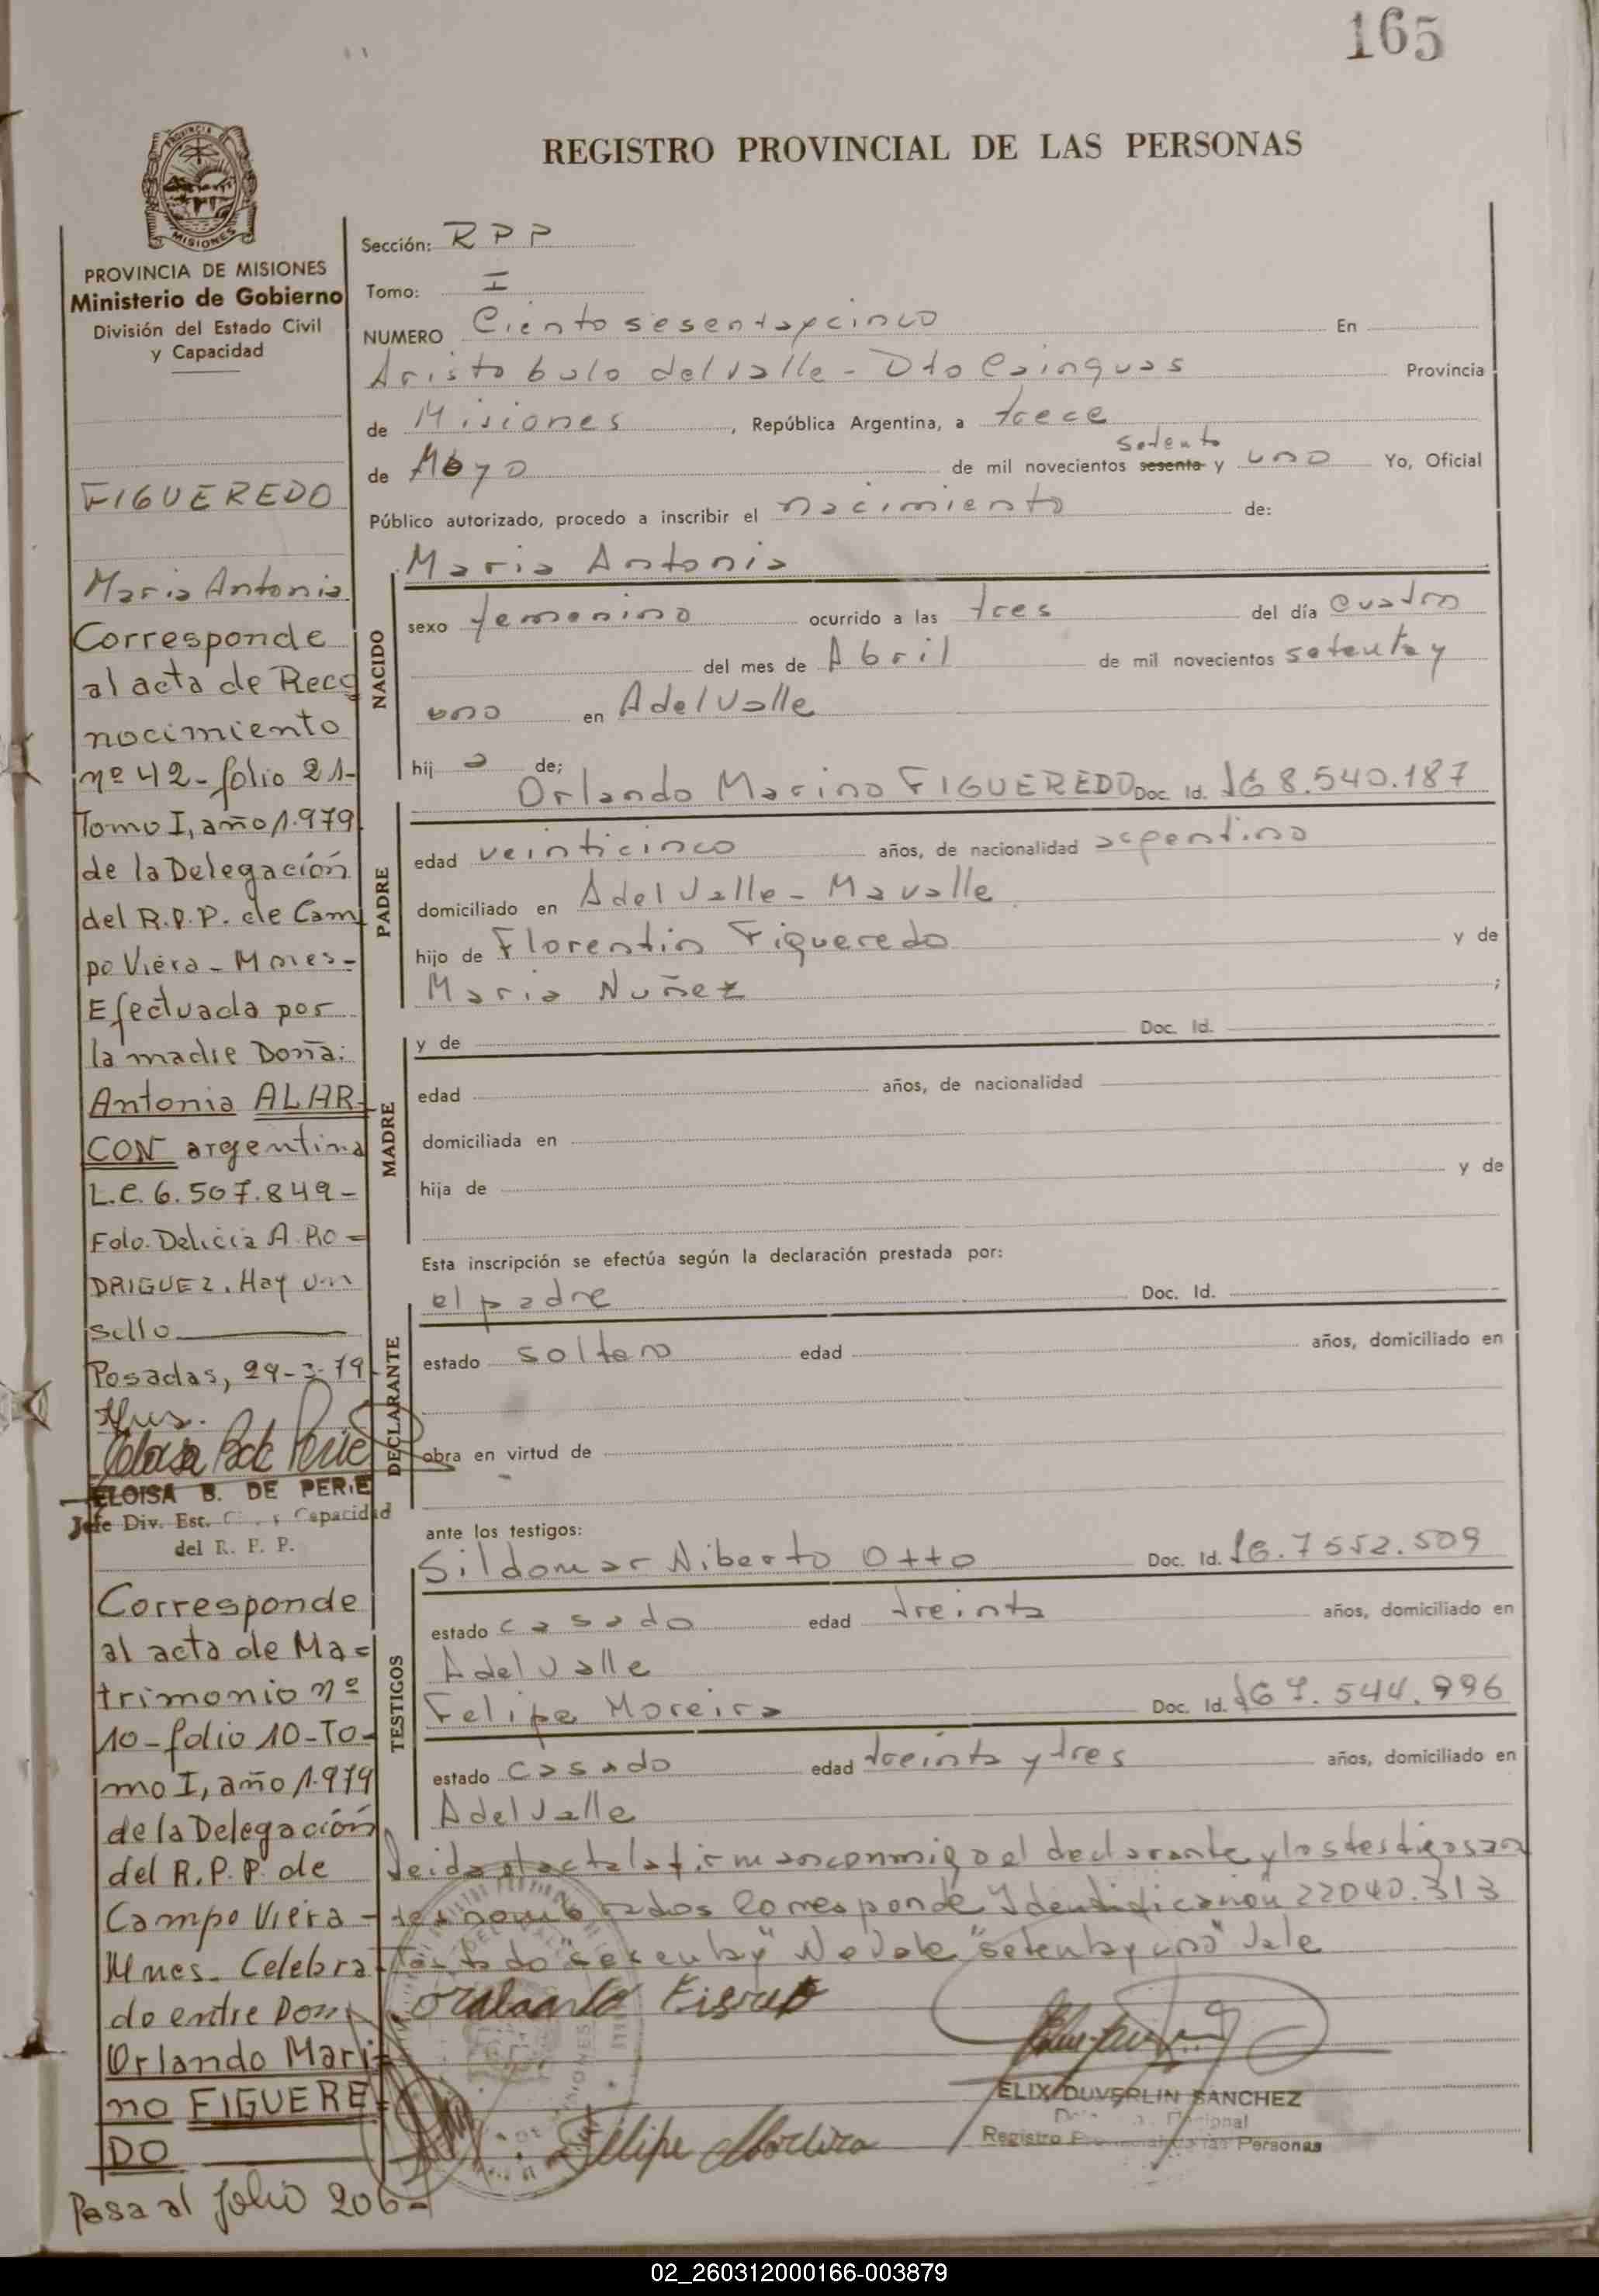 165
REGISTRO PROVINCIAL DE LAS PERSONAS
PROVINCIA MISIONES
PROVINCIA DE MISIONES
Ministerio de Gobierno
División del Estado Civil
y Capacidad
FIGUEREDO
Maria Antonia
Corresponde
al acta de Reco
nocimiento
nº 42 - folio 21-
Tomo I, año 1.979
de la Delegación
del R.P.P. de Cam
po Viera - Mnes-
Efectuada por
la madre Doña:
Antonia ALAR-
CON argentina
L.C. 6.507.849-
Fdo. Delicia A. RO-
DRIGUEZ. Hay un
sello
Posadas, 29-3-79
ELOISA B. DE PERIE
Jefe Div. Est. Capacidad
del R. P. P.
Corresponde
al acta de Ma-
trimonio nº
10 - folio 10 - To-
mo I, año 1.979
de la Delegación
del R.P.P. de
Campo Viera -
Mnes. Celebra
do entre Don
Orlando Mari-
no FIGUERE-
DO
Pasa al folio 206-
Sección: RPP
Tomo: I
NUMERO Ciento sesenta y cinco En
Aristobulo del Valle - Dto Cainguas Provincia
de Misiones, República Argentina, a trece
setenta
de Mayo de mil novecientos sesenta y uno Yo, Oficial
Público autorizado, procedo a inscribir el nacimiento de:
Maria Antonia
NACIDO
sexo femenino ocurrido a las tres del día cuatro
del mes de Abril de mil novecientos setenta y
uno en A del Valle
hij a de;
Orlando Marino FIGUEREDO Doc. Id. 8.540.187
PADRE
edad veinticinco años, de nacionalidad argentino
domiciliado en A del Valle - Mavalle
hijo de Florentin Figueredo y de
Maria Nuñez ;
y de Doc. Id.
MADRE
edad años, de nacionalidad
domiciliada en
hija de y de
Esta inscripción se efectúa según la declaración prestada por:
el padre Doc. Id.
DECLARANTE
estado soltero edad años, domiciliado en
obra en virtud de
ante los testigos:
Sildomar Niberto Otto Doc. Id. 7552.509
TESTIGOS
estado casado edad treinta años, domiciliado en
A del Valle
Felipe Moreira Doc. Id. 7.544.996
estado casado edad treinta y tres años, domiciliado en
A del Valle
Leida el acta la firman conmigo el declarante y los testigos an
tes nombrados Corresponde Identificación 22040.313
Testado "sesenta y" No Vale "setenta y uno" Vale
Felipe Moreira
ELIX DUVERLIN SANCHEZ
Registro Provincial de las Personas
02_260312000166-003879